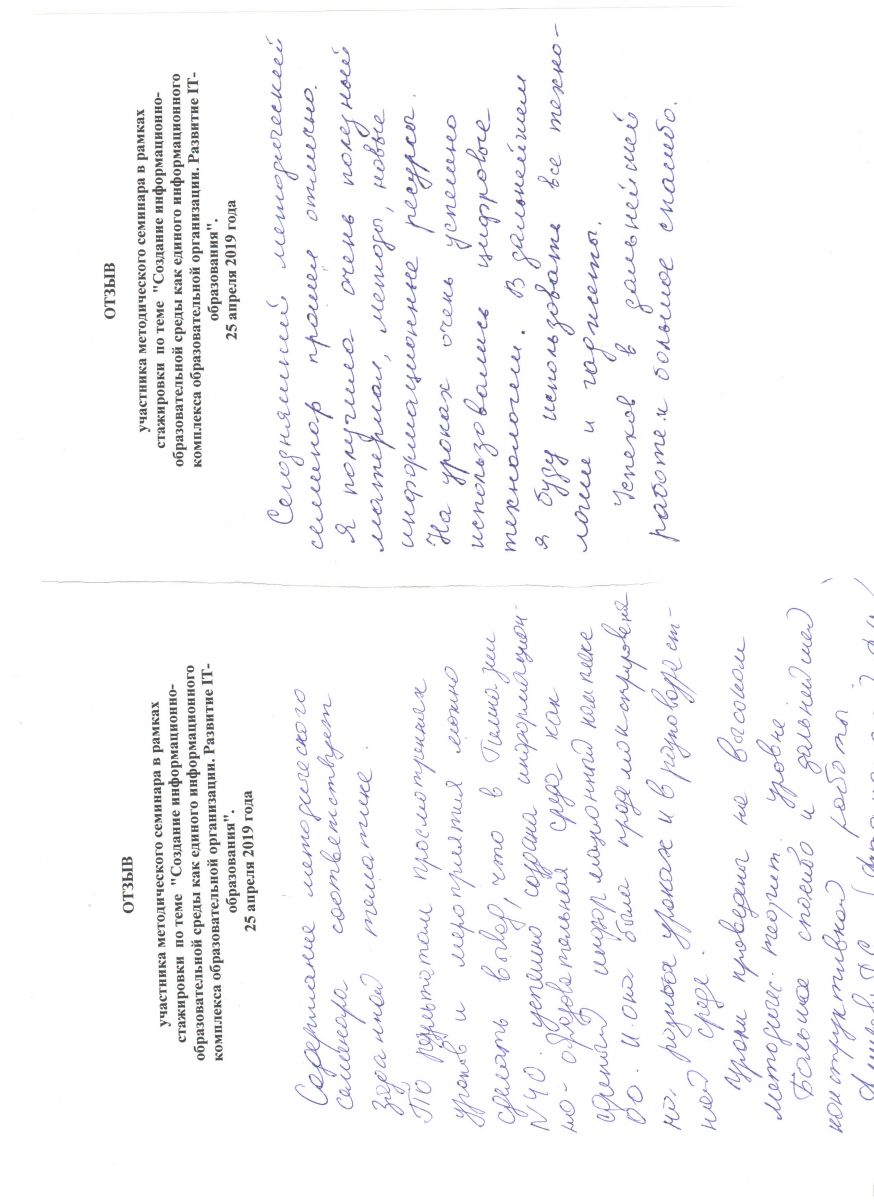 ОТЗЫВ
участника методического семинара в рамках
стажировки по теме "Создание информационно-
образовательной среды как единого информационного
комплекса образовательной организации. Развитие IT-
образования".
25 апреля 2019 года
Содержание методического
семинара соответствует
заданной тематике.
По результатам просмотренных
уроков и мероприятия можно
сделать вывод, что в Гимназии
N40 успешно создана информацион-
но-образовательная среда как
единый информационный комплекс
ОО. И она была продемонстрирована
на разных уроках и в разновозраст-
ной среде.
Уроки проведены на высоком
методичес. теорит. уровне.
Большое спасибо и дальнейшей
конструктивной работы
ОТЗЫВ
участника методического семинара в рамках
стажировки по теме "Создание информационно-
образовательной среды как единого информационного
комплекса образовательной организации. Развитие IT-
образования".
25 апреля 2019 года
Сегодняшний методический
семинар прошёл отлично.
Я получила очень полезный
материал, методы, новые
информационные ресурсы.
На уроках очень успешно
использовались цифровые
технологии. В дальнейшем
я буду использовать все техно-
логии и гаджеты.
Успехов в дальнейшей
работе и большое спасибо.